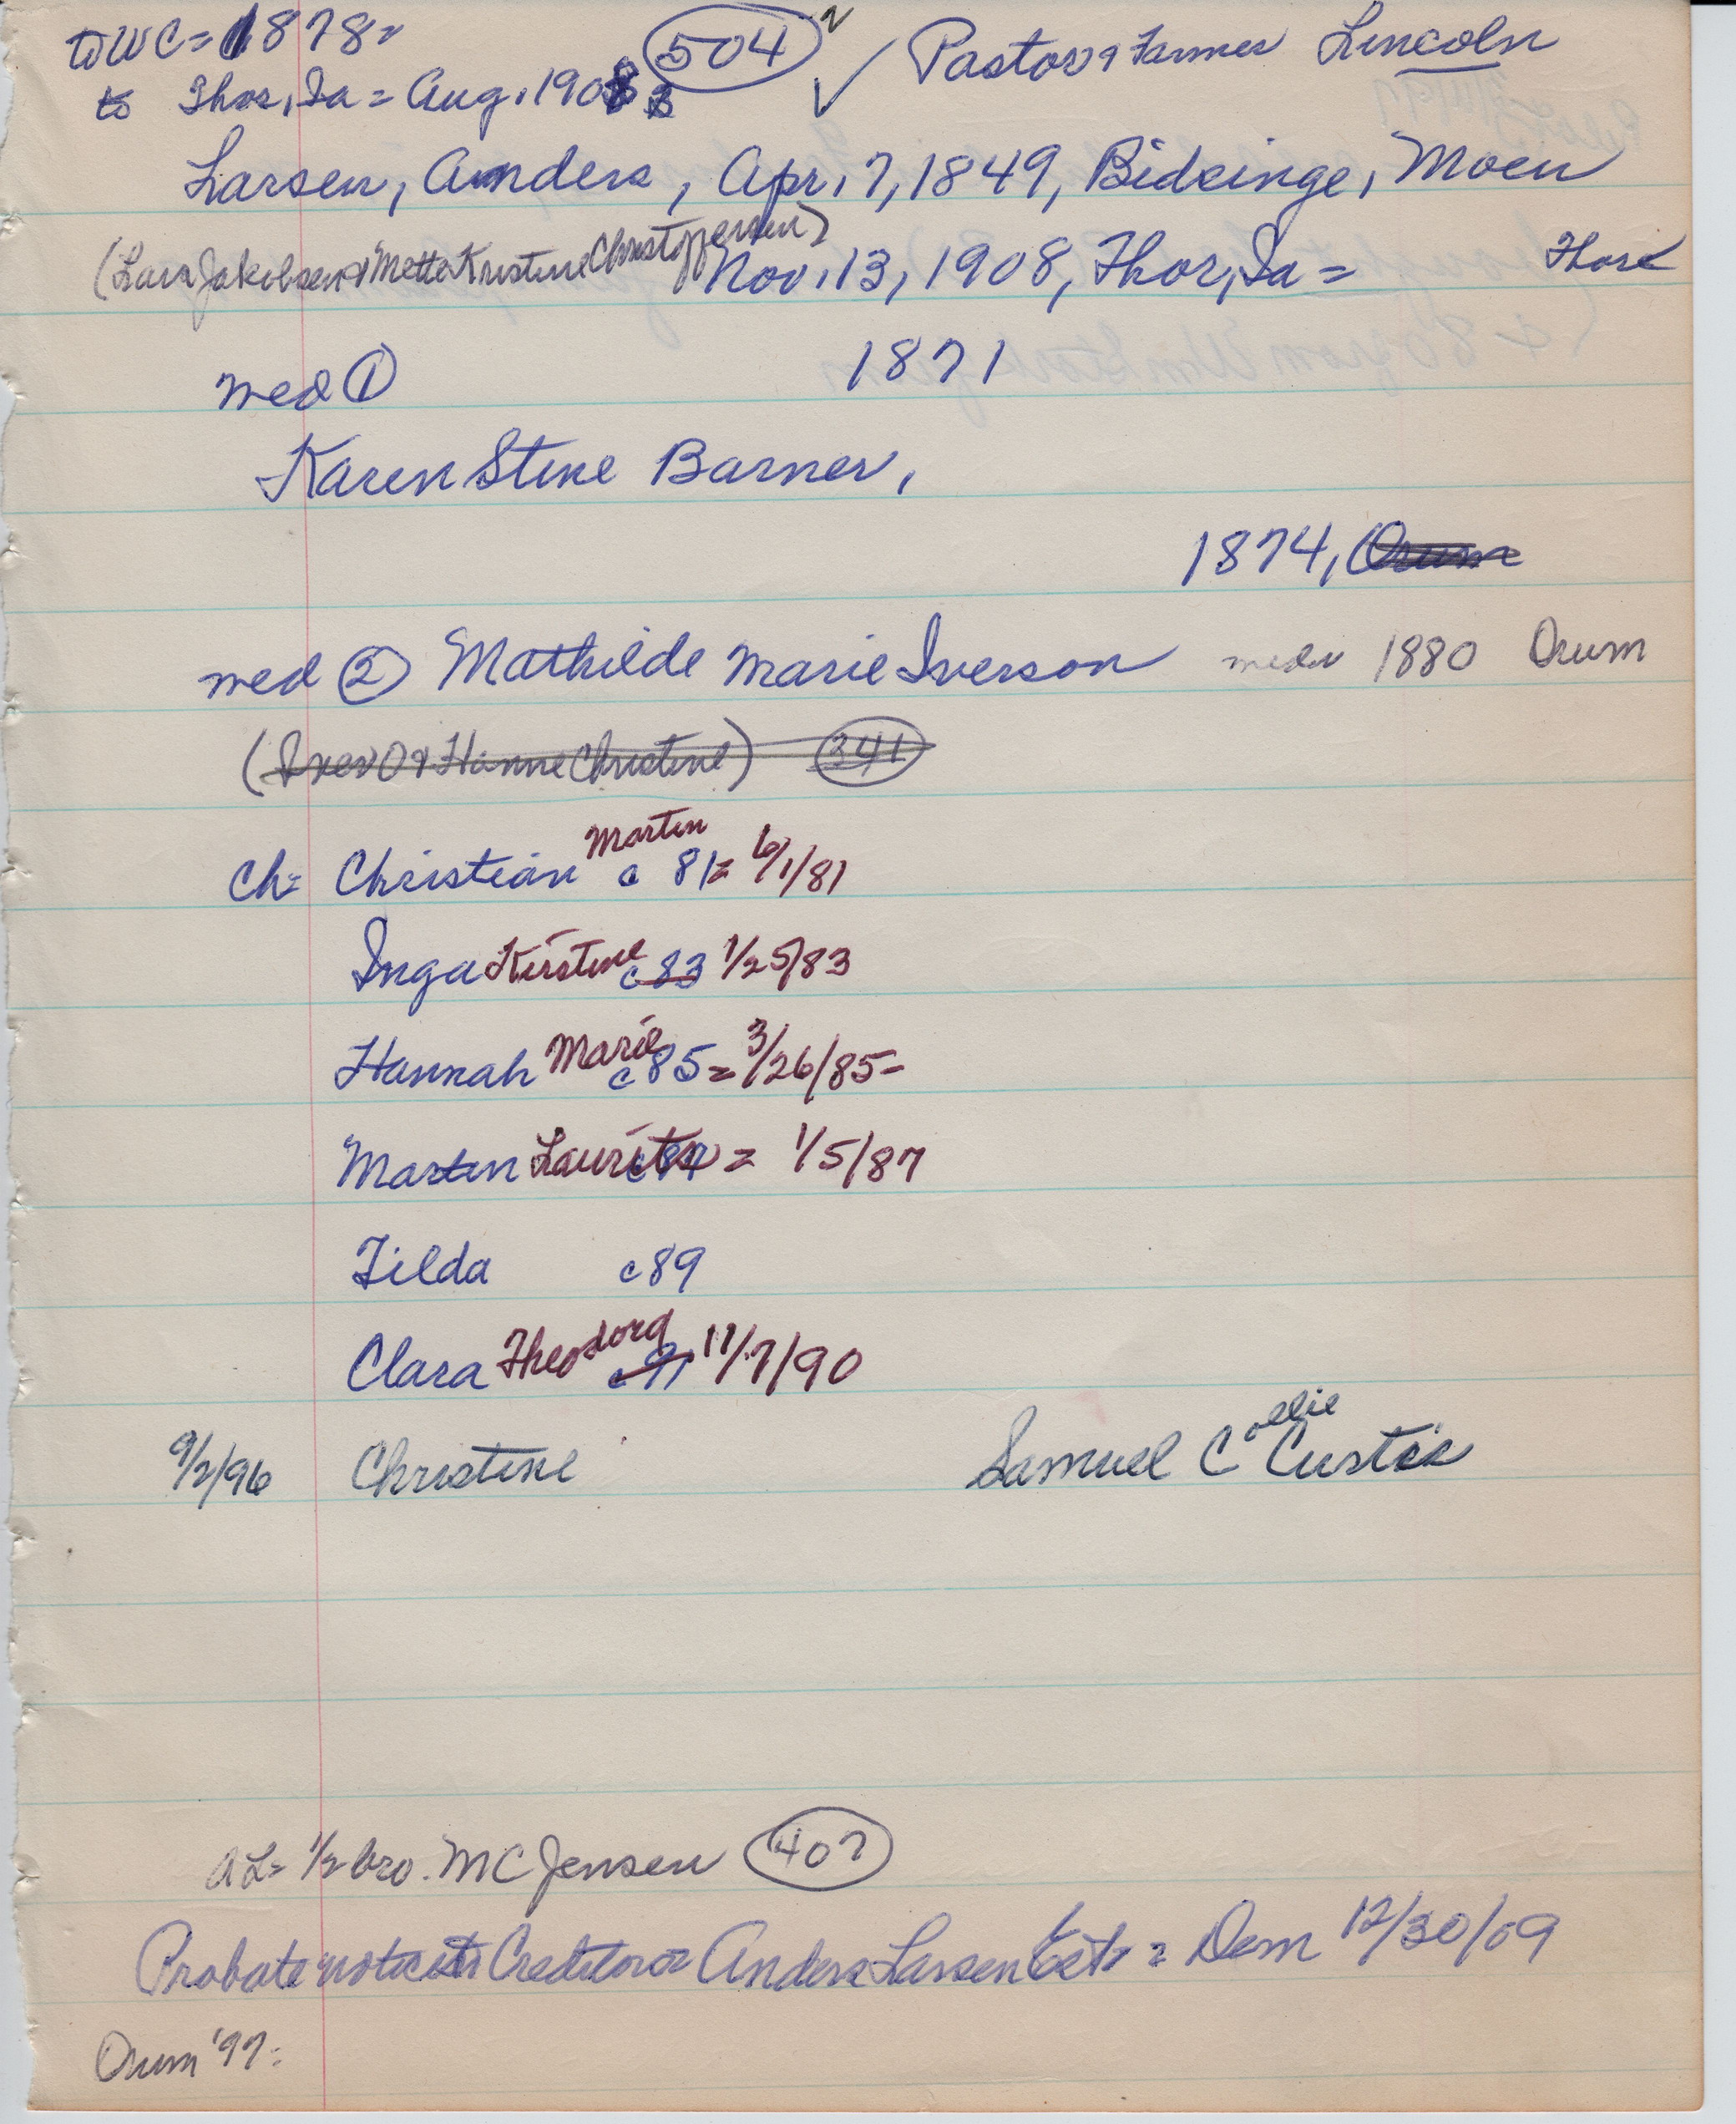 to WC = 1878 =
504 ✓ Pastor & Farmer Lincoln
to Thor, Ia = Aug. 1908
Larsen, Anders, Apr. 7, 1849, Bideinge, Moen
(Lars Jakobsen & Mette Kristine Christoffersen) Nov. 13, 1908, Thor, Ia = Thor
med ① 1871
Karen Stine Barner,
1874, Orum
med ② Mathilde Marie Iverson med 1880 Orum
(Iver O & Hanne Christine) 341
ch = Christian Martin c 81 = 6/1/81
Inga Kirstine c 83 1/25/83
Hannah Marie c 85 = 3/26/85 -
Martin Lauritz c 87 = 1/5/87
Tilda c 89
Clara Theodora c 91 11/7/90
9/2/96 Christine Samuel Collie Curtis
AL = 1/2 bro. MC Jensen 407
Probate notice to Creditors Anders Larsen Est = Dem 12/30/09
Orum '97 =